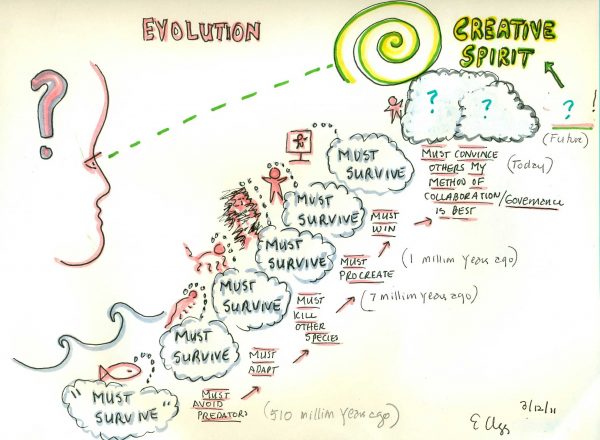 EVOLUTION
CREATIVE
SPIRIT
?
?
?
? !
(Future)
MUST
SURVIVE
MUST CONVINCE
OTHERS MY
METHOD OF
COLLABORATION/Governance
IS BEST
(Today)
MUST
SURVIVE
MUST
WIN
MUST
SURVIVE
MUST
PROCREATE
(1 million years ago)
MUST
SURVIVE
MUST
KILL
OTHER
SPECIES
(7 million years ago)
MUST
SURVIVE
MUST
ADAPT
"MUST
SURVIVE"
MUST
AVOID
PREDATORS
(510 million years ago)